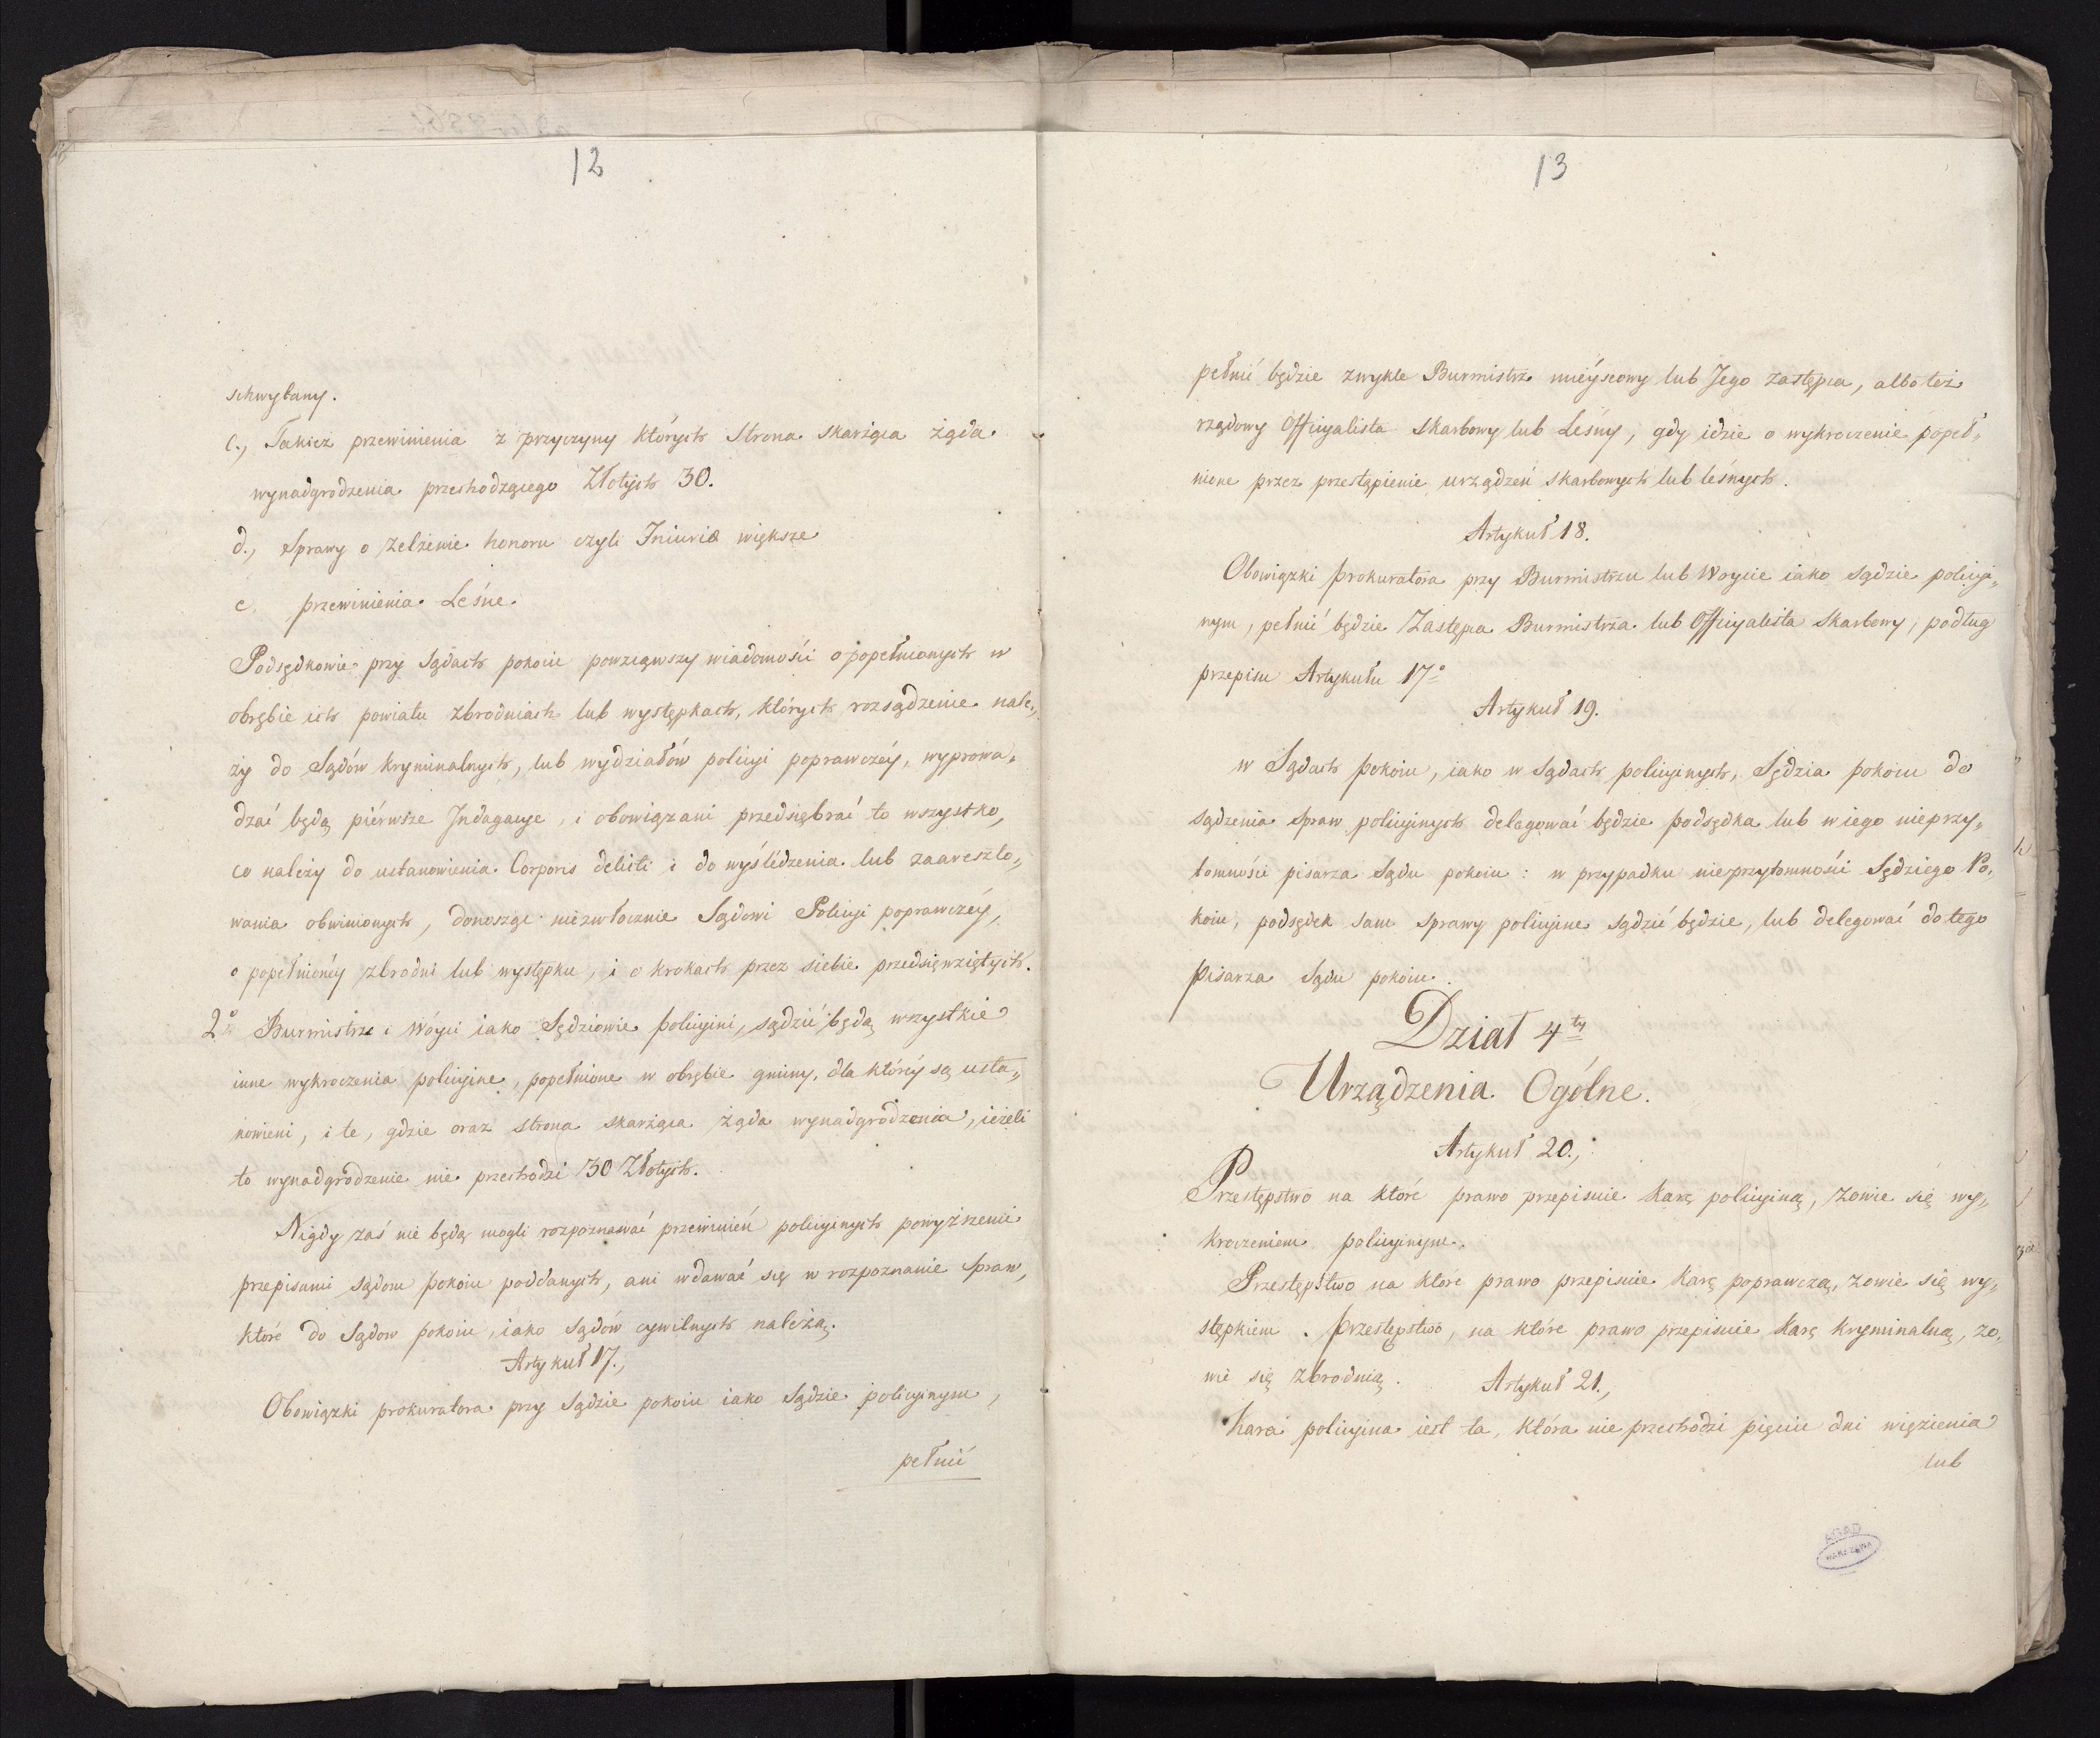 12
schwytany.
c., Takież przewinienia z przyczyny których Strona skarżąca żąda
wynadgrodzenia przechodzącego Złotych 30.
d., Sprawy o zelżenie honoru czyli Iniuriæ większe
e. przewinienia Leśne.
Podsędkowie przy Sądach pokoiu powziąwszy wiadomości o popełnionych w
obrębie ich powiatu zbrodniach lub występkach, których rozsądzenie nale„
ży do Sądów kryminalnych, lub wydziałów policyi poprawczéy, wyprowa„
dzać będą piérwsze Indagacye, i obowiązani przedsiębrać to wszystko,
co należy do ustanowienia Corporis delicti i do wyśledzenia lub zaareszto„
wania obwinionych, donosząc niezwłocznie Sądowi Policyi poprawczéy,
o popełnionéy zbrodni lub występku, i o krokach przez siebie przedsięwziętych.
2° Burmistrze i Wóyci iako Sędziowie policyini, sądzić będą wszystkie
inne wykroczenia policyine, popełnione w obrębie gminy, dla któréy są usta„
nowieni, i te, gdzie oraz strona skarżąca żąda wynadgrodzenia, ieżeli
to wynadgrodzenie nie przechodzi 30 Złotych.
Nigdy zaś nie będą mogli rozpoznawać przewinień policyinych powyższemi
przepisami sądom pokoiu poddanych, ani wdawać się w rozpoznanie spraw,
które do Sądow pokoiu, iako sądów cywilnych należą.
Artykuł 17.,
Obowiązki prokuratora przy Sądzie pokoiu iako Sądzie policyinym,
pełnić
13
pełnić będzie zwykle Burmistrz mieyscowy lub Jego zastępca, albo też
rządowy Officyalista skarbowy lub Leśny, gdy idzie o wykroczenie popeł„
nione przez przestąpienie urządzeń skarbowych lub leśnych.
Artykuł 18.
Obowiązki prokuratora przy Burmistrzu lub Woycie iako sądzie policyi„
nym, pełnić będzie Zastępca Burmistrza lub Officyalista Skarbowy, podług
przepisu Artykułu 17°
Artykuł 19.
w Sądach pokoiu, iako w sądach policyinych, Sędzia pokoiu do
sądzenia spraw policyinych delegować będzie podsędka lub w iego nieprzy„
tomności pisarza Sądu pokoiu: w przypadku nieprzytomności Sędziego Po„
koiu, podsędek sam sprawy policyine sądzić będzie, lub delegować do tego
pisarza Sądu pokoiu.
Dział 4ty
Urządzenia Ogólne.
Artykuł 20.,
Przestępstwo na które prawo przepisuie karę policyiną, zowie się wy„
kroczeniem policyinym.
Przestępstwo na które prawo przepisuie karę poprawczą, zowie się wy„
stępkiem. Przestępstwo, na które prawo przepisuie karę kryminalną, zo„
wie się zbrodnią.
Artykuł 21.,
Kara policyina iest ta, która nie przechodzi pięciu dni więzienia
lub
AGAD
WARSZAWA